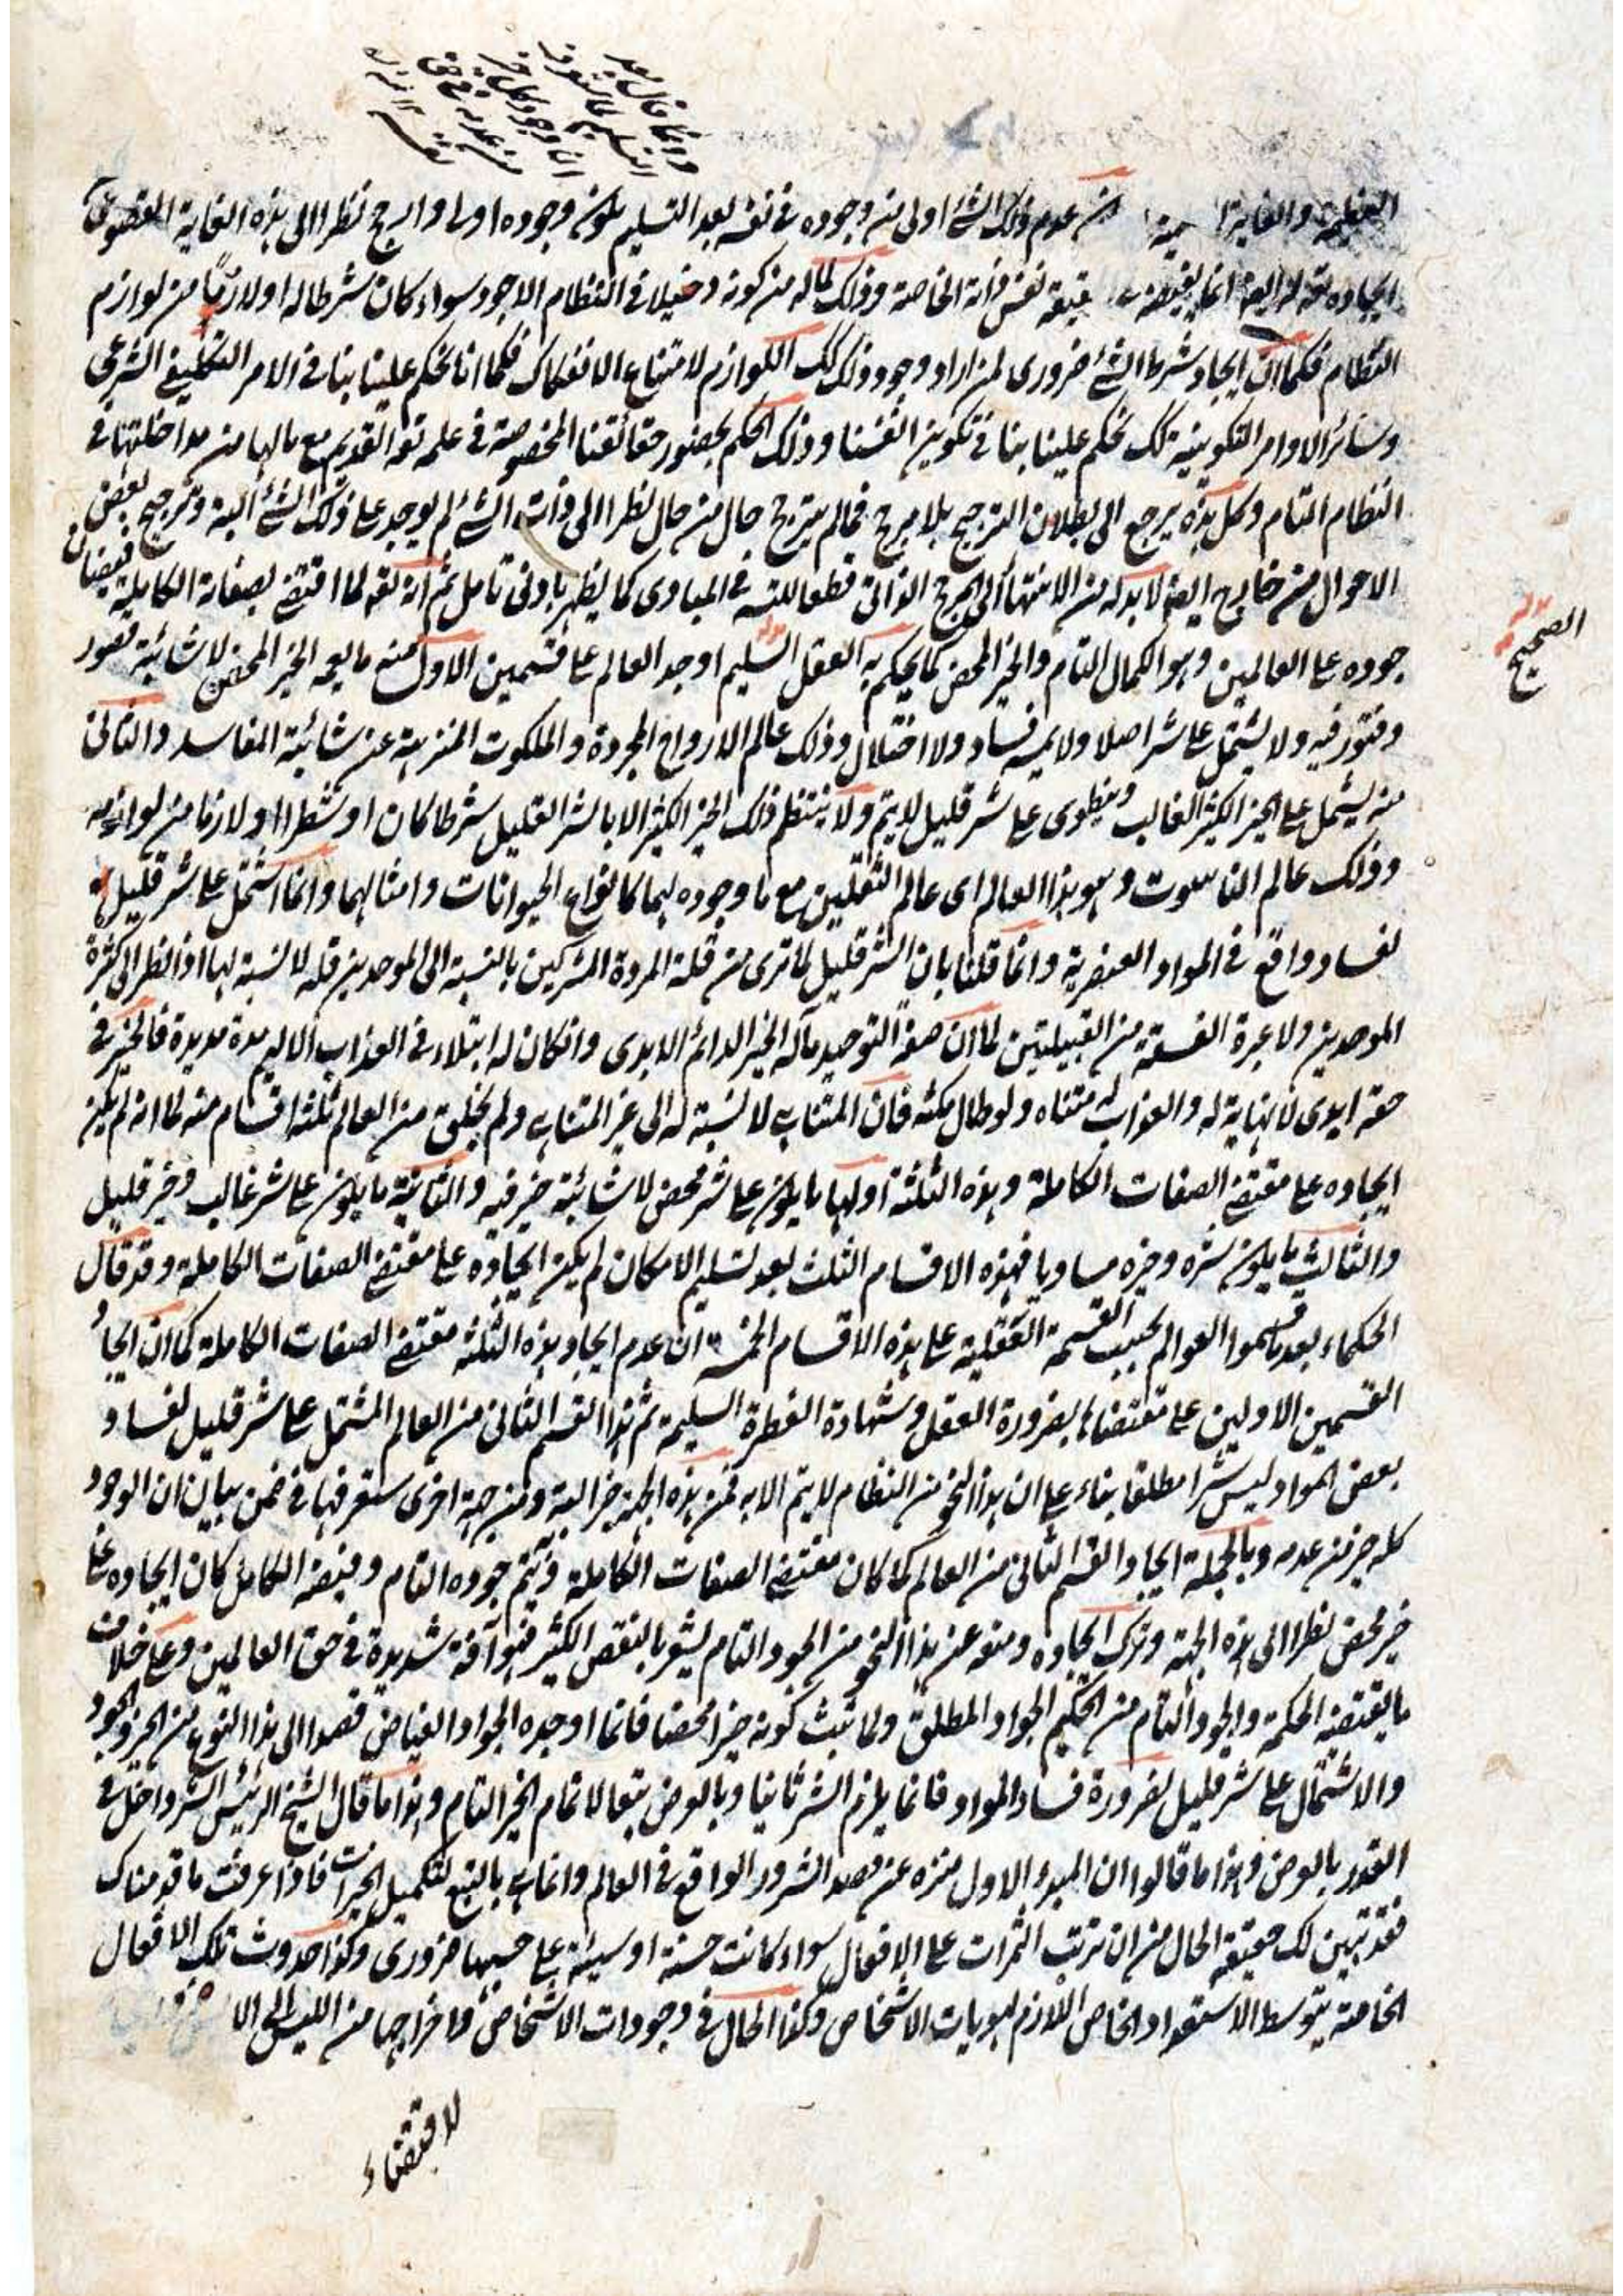 العظيمة والغاية ان عدم ذلك الشئ اولى من وجوده فى نفسه بعد التسليم يكون وجوده اولى وارجح نظرا الى هذه الغاية
ايجاده تعه له ايضا انما يقتضيه حقيقة نفس ذاته الخاصة وذلك لما له من كونه دخيلا فى النظام الاجود سواء كان شرطا له او لازما من لوازم
النظام فكما ان ايجاد شرط الشئ ضرورى لمن اراد وجود ذلك كك اللوازم لامتناع الانفكاك فكما انا نحكم علينا بنا فى الامر التكليفى الشرعى
وسائر الاوامر التكوينية كك نحكم علينا بنا فى تكوين انفسنا وذلك الحكم بحضور حقائقنا المخصوصة فى علمه تعه القديم مع مالها من مداخلتها فى
النظام التام وكل هذه يرجع الى بطلان الترجيح بلا مرجح فمالم يترجح حال من حال نظرا الى ذات الشئ لم يوجد على ذلك الشئ البتة وترجيح بعض
الاحوال من خارج ايضا لابد له من الانتهاء الى المرجح الذاتى قطعا للتسه فى المبادى كما يظهر بادنى تامل ثم انه تعه لما اقتضى بصفاته الكاملة فيضان
جوده على العالمين وهو الكمال التام والخير المحض كما يحكم به العقل السليم اوجد العالم على قسمين الاول منه ما يعمه الخير المحض لا شائبة قصور
الصحيح
وفتور فيه ولا يشتمل على شر اصلا ولا يمسه فساد ولا اختلال وذلك عالم الارواح المجردة والملكوت المنزهة عن شائبة المفاسد والثانى
منه يشتمل على الخير الكثير الغالب وينطوى على شر قليل لا يتم ولا ينتظم ذلك الخير الكثير الا بالشر القليل شرطا كان او شطرا او لازما من لوازمه
وذلك عالم الناسوت وهو هذا العالم اى عالم الثقلين مع ما وجوده لهما كانواع الحيوانات وامثالهما وانما اشتمل على شر قليل
لفساد واقع فى المواد العنصرية وانما قلنا بان الشر قليل لما ترى من قلة المردة المشركين بالنسبة الى الموحدين قلة لا نسبة لها اذا نظر الى كثرة
الموحدين ولا عبرة الفسقة من القبيلتين لما ان صفة التوحيد مآله الخير الدائم الابدى وان كان له ابتلاء فى العذاب الاليم مدة مديدة فالخير فى
حقه ابدى لا نهاية له والعذاب له متناه ولو طال مكثه فان المتناهى لا نسبة له الى غير المتناهى ولم يخلق من العالم ثلثة اقسام منه لما انه لم يكن
ايجاده على مقتضى الصفات الكاملة وهذه الثلثة اولها ما يكون على شر محض لا شائبة خير فيه والثانية ما يكون على شر غالب وخير قليل
والثالث ما يكون شره وخيره مساويا فهذه الاقسام الثلث بعد تسليم الامكان لم يكن ايجاده على مقتضى الصفات الكاملة وقد قال
الحكماء بعد ما قسموا العوالم بحسب القسمة العقلية على هذه الاقسام الخمسة ان عدم ايجاد هذه الثلثة مقتضى الصفات الكاملة كما ان ايجاد
القسمين الاولين على مقتضاها بضرورة العقل وشهادة الفطرة السليمة ثم هذا القسم الثانى من العالم المشتمل على شر قليل لفساد
بعض المواد ليس شرا مطلقا بناء على ان هذا النحو من النظام لا يتم الا به فمن هذه الجهة خير البتة ومن جهة اخرى ستعرفها فى ضمن بيان ان الوجود
كله خير من عدمه وبالجملة ايجاد القسم الثانى من العالم كما كان مقتضى الصفات الكاملة فتم جوده التام وفيضه الكامل كان ايجاده على
خير محض نظرا الى هذه الجهة وترك ايجاده ومنعه عن هذا النحو من الجود التام يشعر بالنقص الكثير فهو آفة شديدة فى حق العالمين وعلى خلاف
ما يقتضيه الحكمة والجود التام من الحكيم الجواد المطلق ولما ثبت كونه خيرا محضا فانما اوجده الجواد الفياض قصدا الى هذا النوع من الخير والجود
والاشتمال على شر قليل لضرورة فساد المواد فانما يلزم الشر ثانيا وبالعرض تبعا لاتمام الخير التام وهذا ما قال الشيخ الرئيس الشر داخل فى
القدر بالعرض وهذا ما قالوا ان المبدء الاول منزه عن قصد الشرور الواقع فى العالم وانما هى بالتبع لتكميل الخيرات فاذا عرفت ما قدمناك
فقد تبين لك حقيقة الحال من ان ترتب الثمرات على الافعال سواء كانت حسنة او سيئة على حسبها ضرورى وكذا حدوث تلك الافعال
الخاصة بتوسط الاستعداد الخاص اللازم لهويات الاشخاص وكذا الحال فى وجودات الاشخاص واخراجها من الليس الى
لاقتضاء